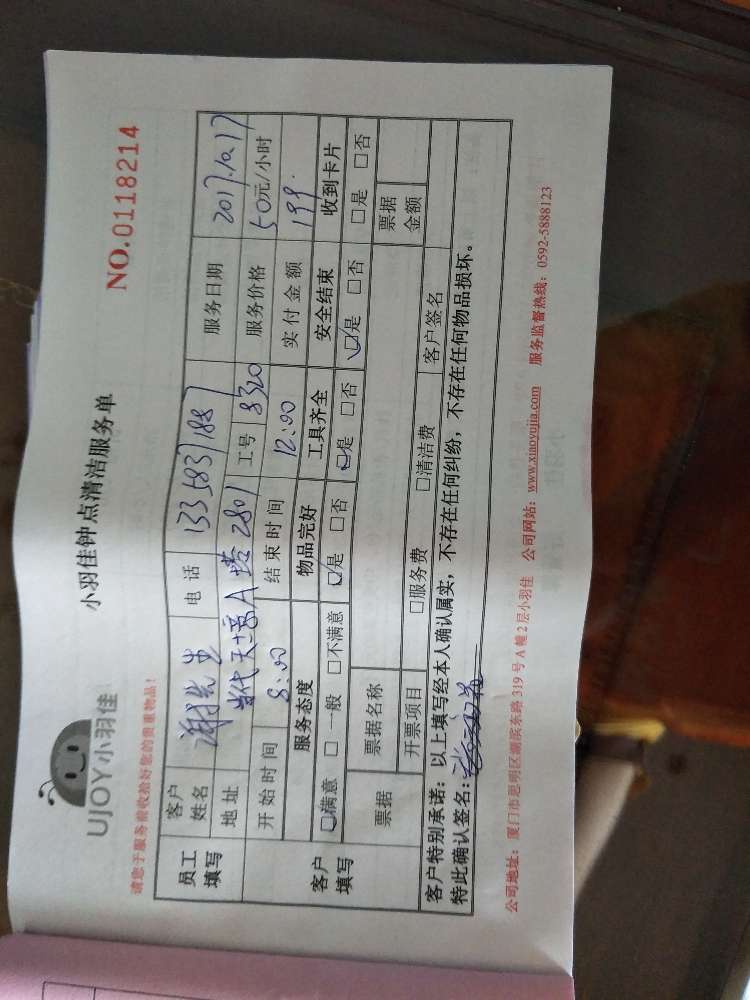 UJOY小羽佳
小羽佳钟点清洁服务单
NO.0118214
请您于服务前收拾好您的贵重物品！
员工填写 客户姓名 谢先生 电话 服务日期 2017.10.17
地址 当代天境A塔2801 工号 8320 服务价格 50元/小时
开始时间 8:00 结束时间 12:00 实付金额 199.
客户填写 服务态度 物品完好 工具齐全 安全结束 收到卡片
☑满意 □一般 □不满意 ☑是 □否 ☑是 □否 ☑是 □否 □是 □否
票据 票据名称 票据金额
开票项目 □服务费 □清洁费 客户签名
客户特别承诺：以上填写经本人确认属实，不存在任何纠纷，不存在任何物品损坏。
特此确认签名：
公司地址：厦门市思明区湖滨东路319号A幢2层小羽佳 公司网站：www.xiaoyujia.com 服务监督热线：0592-5888123